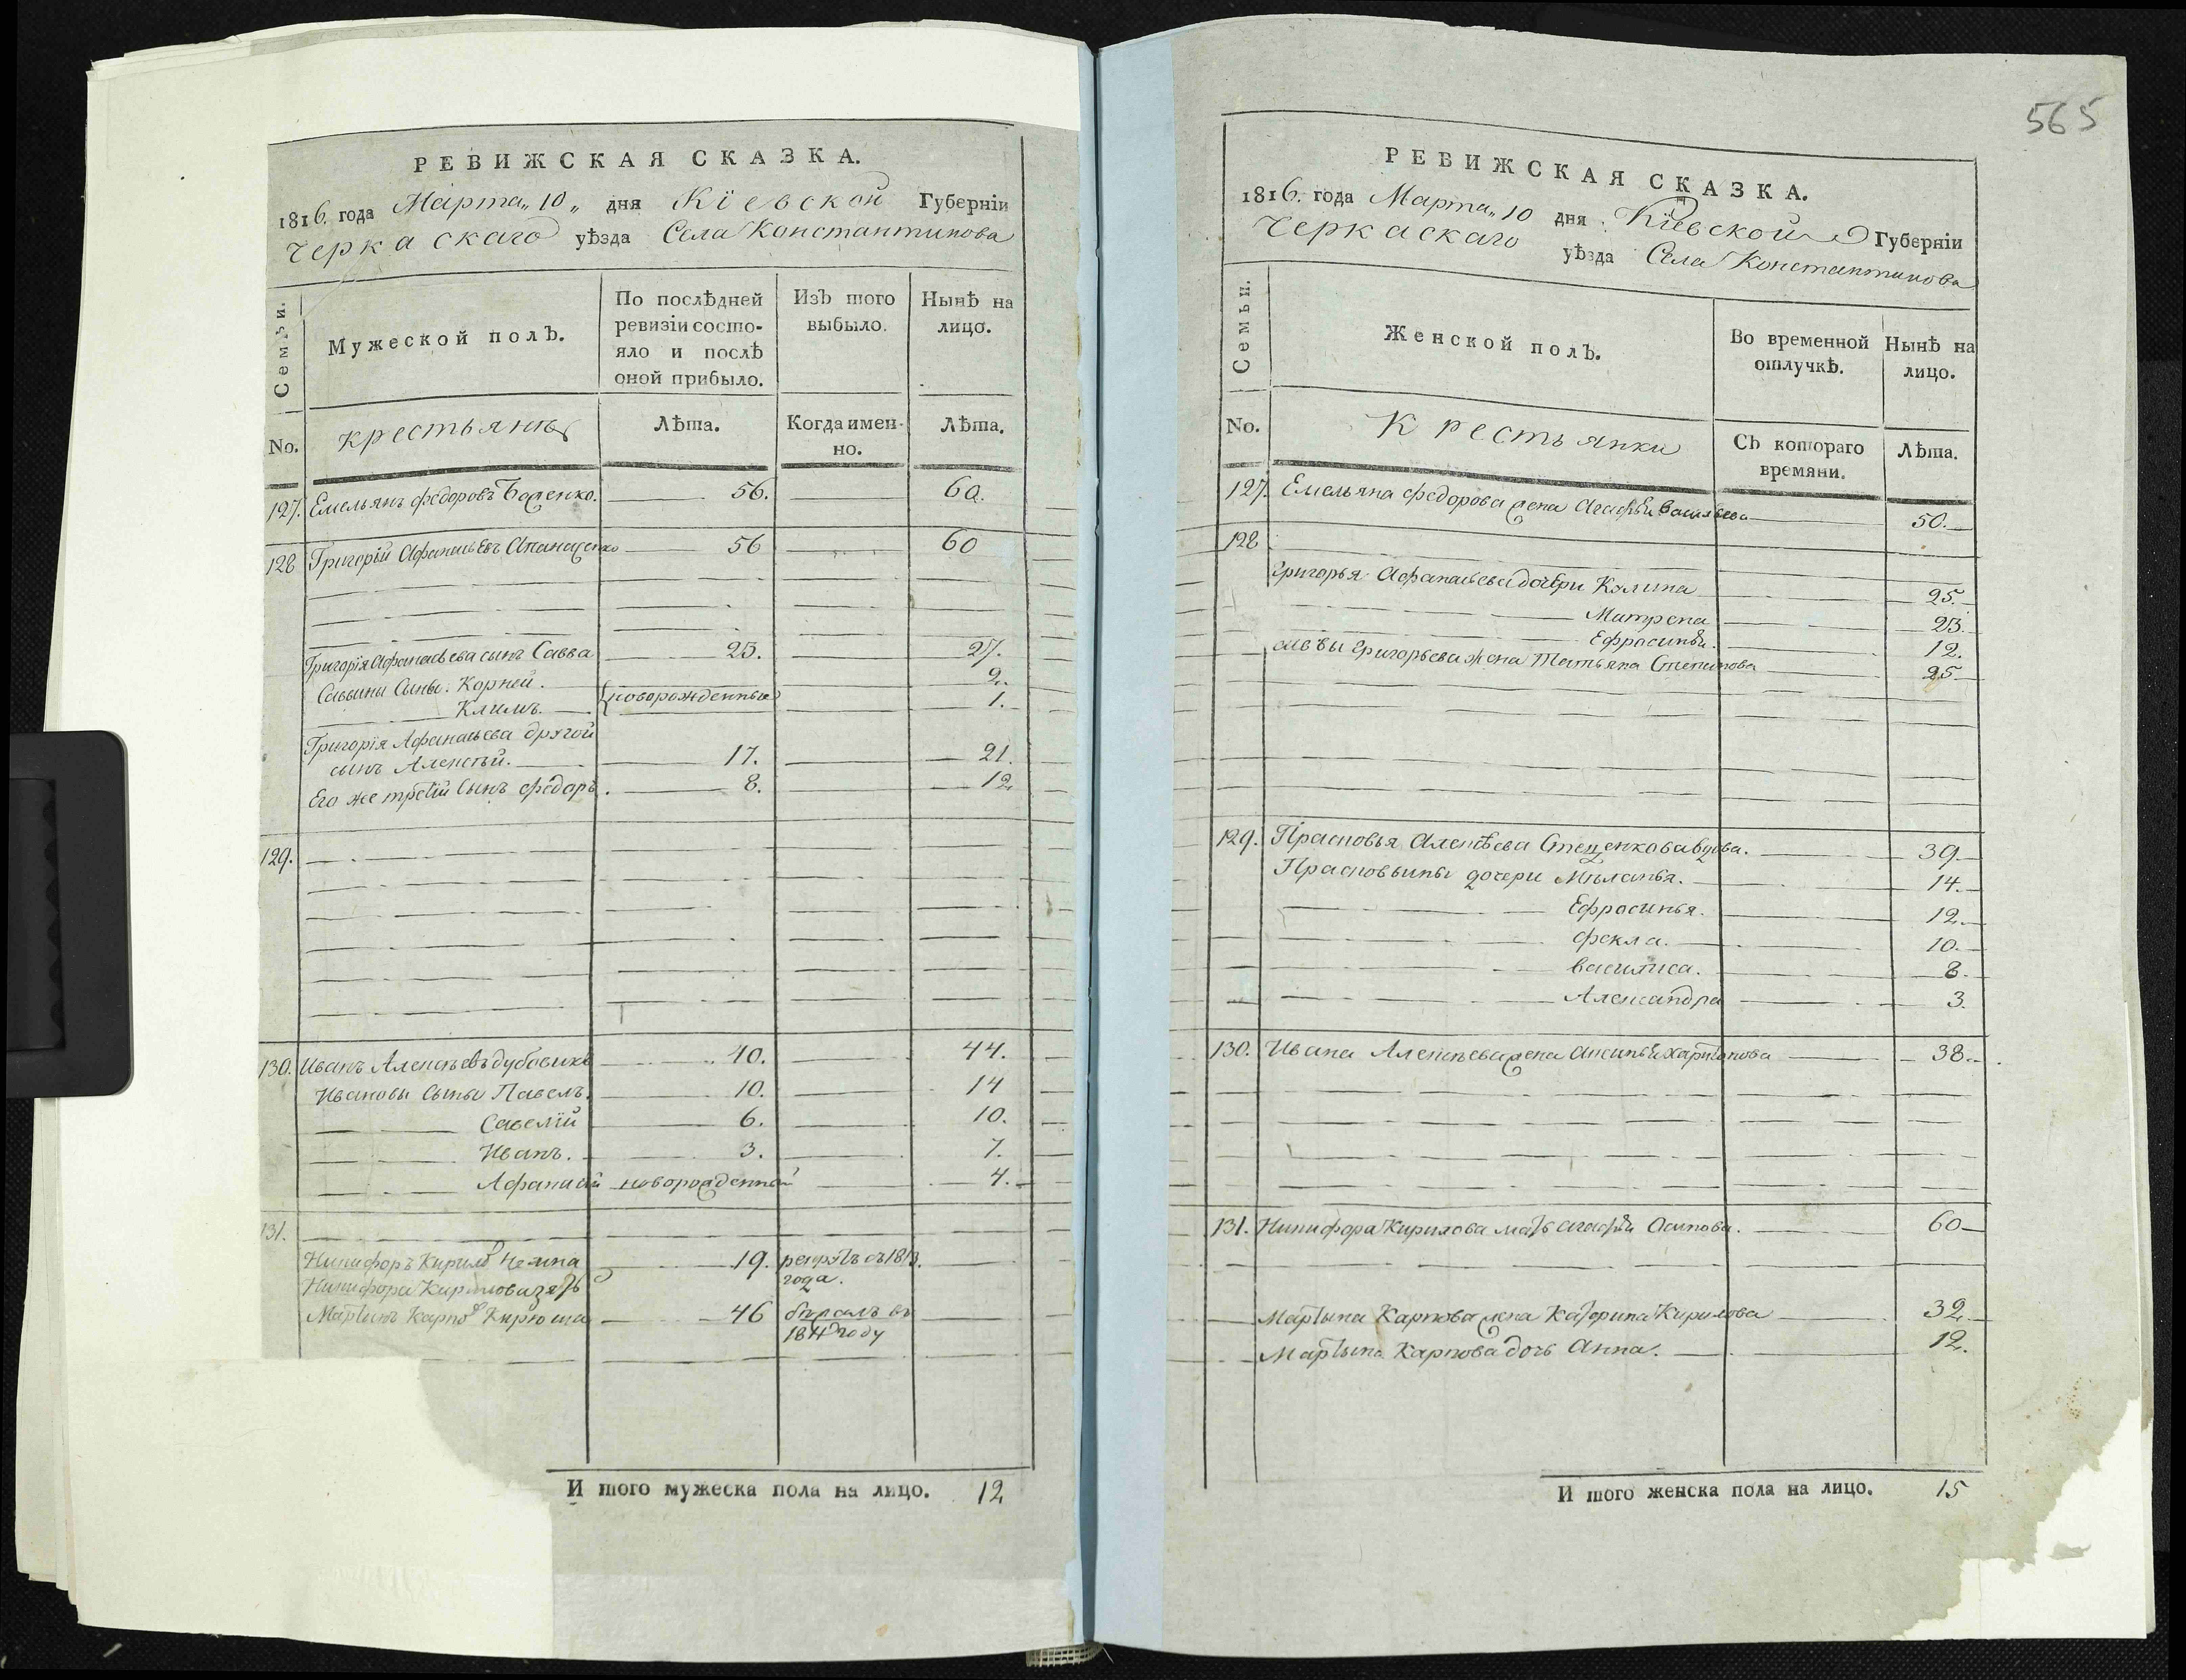 РЕВИЖСКАЯ СКАЗКА.
1816. года Марта „10„ дня Кіевской Губерніи
Черкаскаго уѣзда Села Константинова
Семьи.
Мужеской полъ.
По послѣдней ревизіи состо-
яло и послѣ
оной прибыло.
Изъ того
выбыло.
Нынѣ на
лицо.
No.
крестьяне
Лѣта.
Когда имен-
но.
Лѣта.
127. Емельянъ Федоровъ 56. 60.
128 Григорій Афанасьевъ Апанасенко 56 60
Григорія Афанасьева сынъ Савва 23. 27.
Саввины Сыны: Корней. новорожденные 2.
Климъ. 1.
Григорія Афанасьева другой
сынъ Алексѣй. 17. 21.
Его же третій Сынъ Федоръ. 8. 12.
129.
130. Иванъ Алексѣевъ дубовикъ 40. 44.
Ивановы Сыны Павелъ. 10. 14
Савелій 6. 10.
Иванъ. 3. 7.
Афанасій новорожденный 4.
131.
Никифоръ Кирилов 19. рекрутъ съ 1813.
года.
Никифора Кирилова зять
Мартынъ Карпов 46 въ
году
И того мужеска пола на лицо. 12
565
РЕВИЖСКАЯ СКАЗКА.
1816. года Марта „10 дня Кіевской Губерніи
Черкаскаго уѣзда Села Константинова
Семьи.
Женской полъ.
Во временной
отлучкѣ.
Нынѣ на
лицо.
No.
Крестьянки
Съ котораго
времяни.
Лѣта.
127. Емельяна Федорова жена Агафья Васильева 50.
128
Григорья Афанасьева дочери Калина 25.
Матрена 23.
Ефросинья. 12.
Саввы Григорьева жена Татьяна Степанова 25.
129. Прасковья Алексѣева Стеценкова вдова. 39.
Прасковьины дочери Мѣланья. 14.
Ефросинья. 12.
Фекла. 10.
Василиса. 8.
Александра 3.
130. Ивана Алексѣева жена Аксинья Харитонова 38.
131. Никифора Кирилова мать Агафья Осипова. 60
Мартына Карпова жена Катерина Кирилова 32.
Мартына Карпова дочь Анна. 12.
И того женска пола на лицо. 15